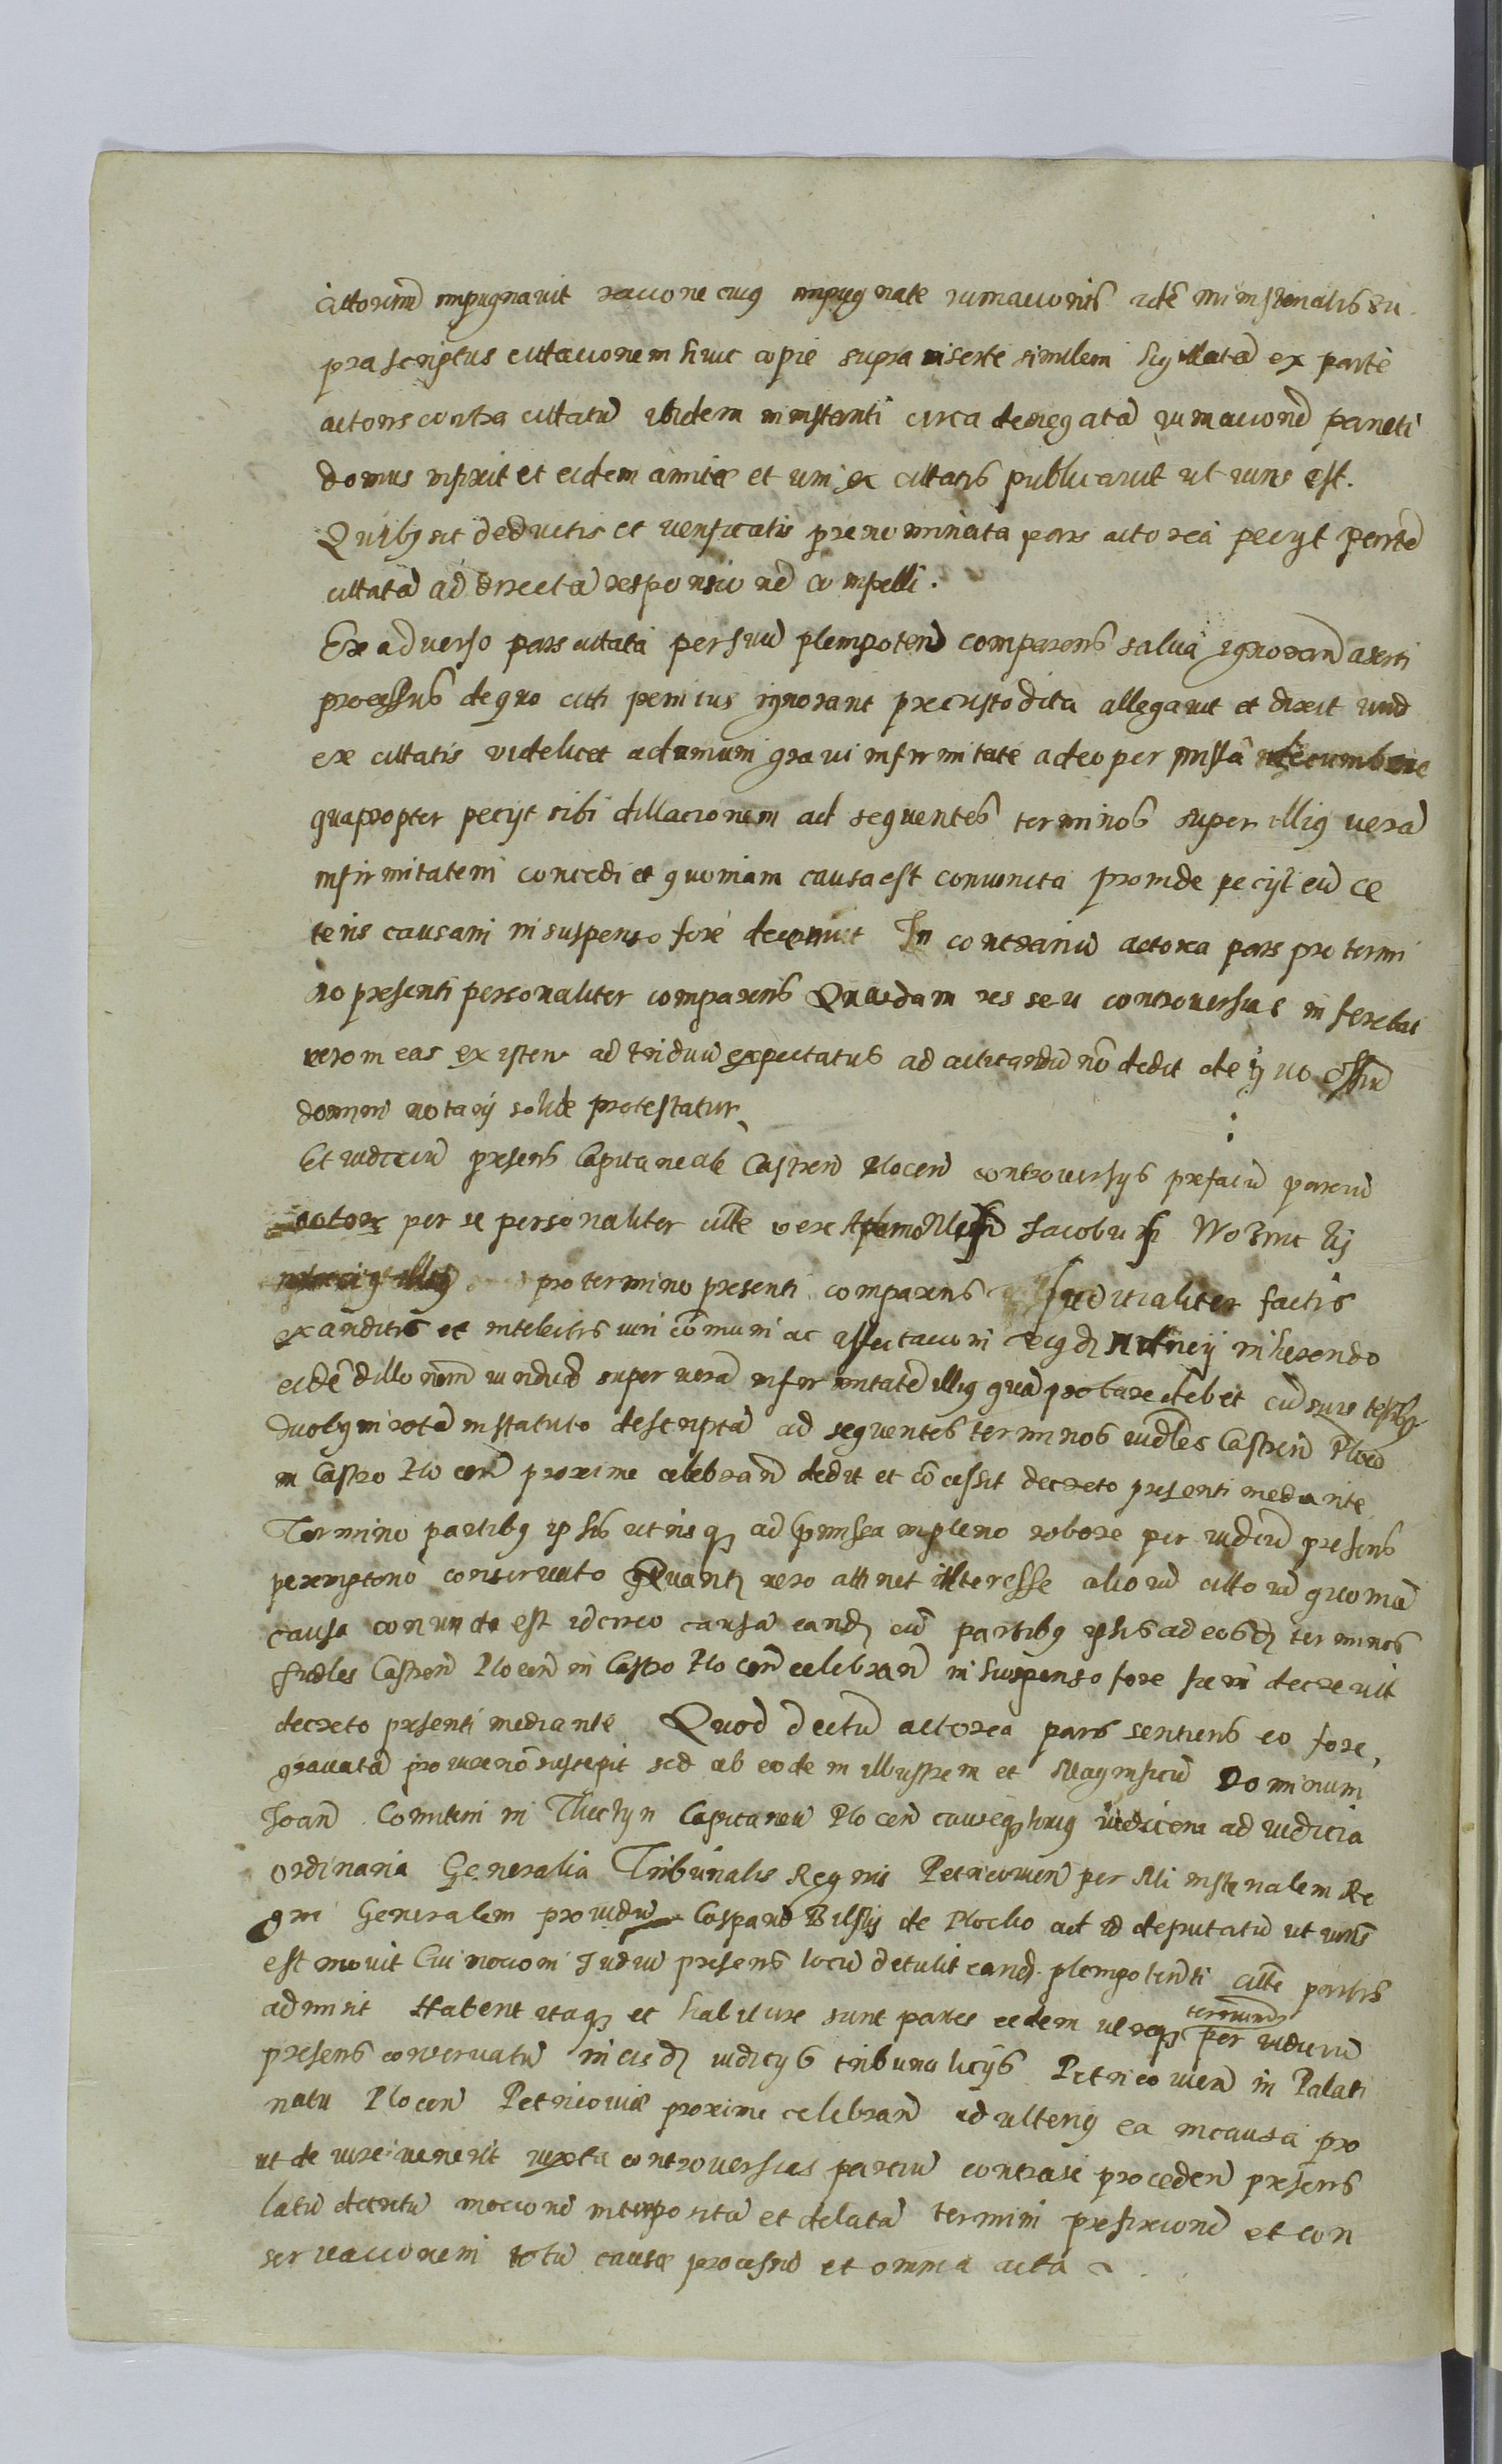 cittorum impugnavit racione cuius impugnate iumacionis idem ministerialis su
pra scriptus cittacionem huic copie supra inserte similem sigillatã ex parte
actoris contra cittatũ ibidem in instanti circa denegatã iumacionẽ parieti
domus infixit et eidem amite et uni ex cittatis publicavit ut iuris est.
Quibus sic deductis et verificatis prenominata pars actorea peciyt partẽ
cittatã ad directã responsionẽ compelli.
Ex adverso pars cittata per suũ plenipotenẽ comparens salva ignoranã aserti
processus de quo citti penitus ignorant precustodita allegavit et dixit unũ
ex cittatis videlicet gravi infirmitate adeo permissã decumbere
quapropter peciyt sibi dillacionem ad sequentes terminos super illius verã
infirmitatem concedi et quoniam causa est coniuncta proinde peciyt eũ ce
teris causam in suspenso fore decerni In contrariũ actorea pars pro termi
no presenti personaliter comparens Quasdam res seu controversias inferebat
verom eas existens ad triduũ expectatus ad actitandũ nõ dedit de quo offim
domini notarij solide protestatur
Et iudiciũ presens Capitaneale Castren Plocen controversiys prefatũ parciũ
actorẽ per se personaliter citte vero Jacobum
pro termino presenti comparens Juditialiter factis
exauditis et intelectis iuri cõmuni ac affectacioni eiusdẽ inherendo
eidẽ dillonem super verã infirmitatẽ illius quã probare debet cũ suis testibus
duobus in rotã in statuto descriptã ad sequentes terminos iudles Castren Plocen
in Castro Plocen proxime celebran dedit et cõcessit decreto presenti mediante
Termino partibus ipsis utrisque ad premissa in pleno robore per iudiciũ presens
peremptorio conservato Quantũ vero attinet interesse aliorũ cittorũ quoniã
causa coniuncta est idcirco causã eandẽ cũ partibus ipsis ad eosdẽ terminos
Judles Castren Plocen in Castro Plocen celebran in suspenso fore decrevit
decreto presenti mediante Quod dectũ actorea pars sentiens eo fore
gravatã pro iure nõ suscepit sed ab eodem illustrem et Magnificũ Dominum
Joanẽ Comitem in Thęczyn Capitaneũ Plocen causeque huius iudicem ad iudicia
ordinaria Generalia Tribunalis Regni Petricovien per Ministerialem Re
gni Generalem providũ Casparũ de Plocko ad id deputatũ ut iuris
est movit Cui mocioni Judiũ presens locũ detulit eandẽ plenipotenti citte partis
admisit Habent itaque et habiture sunt partes eedem utreque terminũ per iudiciũ
presens conservatũ in eisdẽ iudicijs tribunalicijs Petricovien in Palati
natu Plocen Petricoviæ proxime celebran ad ulterius ea in causa pro
ut de iure venerit iuxta controversias parciũ contra se proceden presens
latũ decretũ mocionẽ interpositã et delatã termini prefixionẽ et con
servacionem totũ causæ processũ et omnia acta